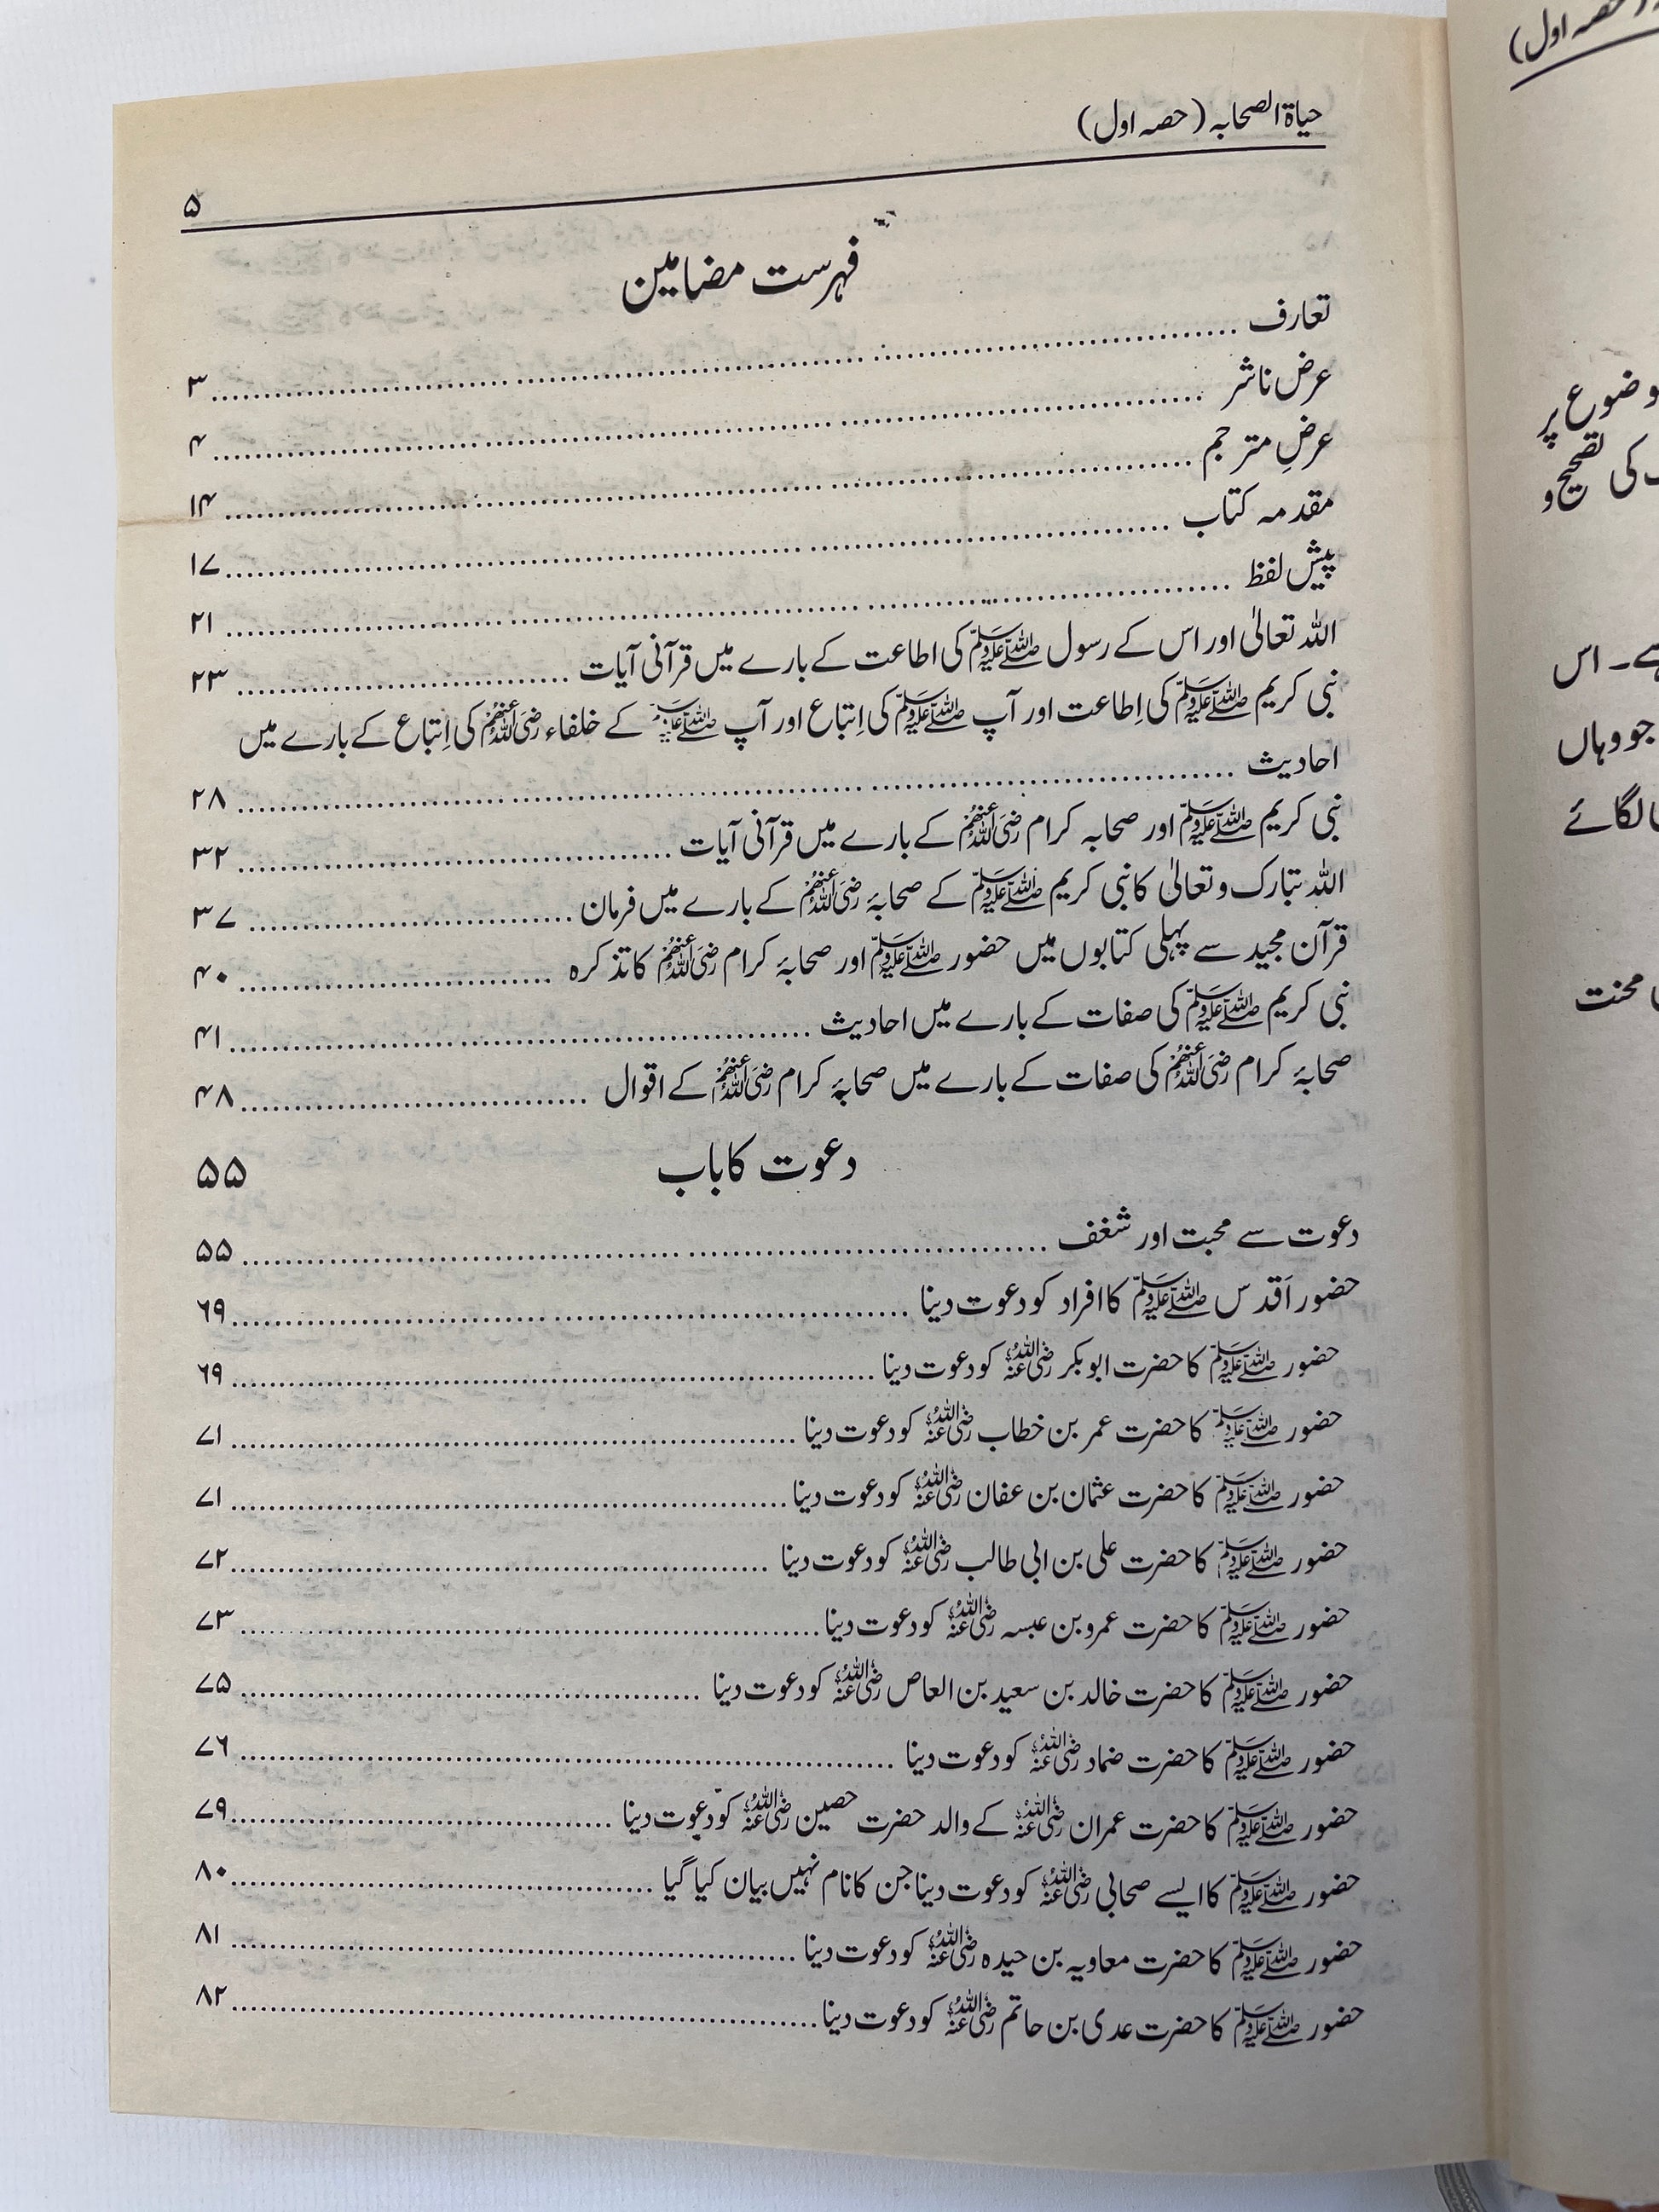 حیاۃ الصحابہ (حصہ اول)
۵
فہرست مضامین
تعارف ........ ۳
عرض ناشر ........ ۴
عرضِ مترجم ........ ۱۴
مقدمہ کتاب ........ ۱۷
پیش لفظ ........ ۲۱
اللہ تعالیٰ اور اس کے رسول ﷺ کی اطاعت کے بارے میں قرآنی آیات ........ ۲۳
نبی کریم ﷺ کی اِطاعت اور آپ ﷺ کی اِتباع اور آپ ﷺ کے خلفاء رضی اللہ عنہم کی اِتباع کے بارے میں
احادیث ........ ۲۸
نبی کریم ﷺ اور صحابہ کرام رضی اللہ عنہم کے بارے میں قرآنی آیات ........ ۳۲
اللہ تبارک و تعالیٰ کا نبی کریم ﷺ کے صحابۂ رضی اللہ عنہم کے بارے میں فرمان ........ ۳۷
قرآن مجید سے پہلی کتابوں میں حضور ﷺ اور صحابۂ کرام رضی اللہ عنہم کا تذکرہ ........ ۴۰
نبی کریم ﷺ کی صفات کے بارے میں احادیث ........ ۴۱
صحابۂ کرام رضی اللہ عنہم کی صفات کے بارے میں صحابۂ کرام رضی اللہ عنہم کے اقوال ........ ۴۸
دعوت کا باب ۵۵
دعوت سے محبت اور شغف ........ ۵۵
حضور اَقدس ﷺ کا افراد کو دعوت دینا ........ ۶۹
حضور ﷺ کا حضرت ابوبکر رضی اللہ عنہ کو دعوت دینا ........ ۶۹
حضور ﷺ کا حضرت عمر بن خطاب رضی اللہ عنہ کو دعوت دینا ........ ۷۱
حضور ﷺ کا حضرت عثمان بن عفان رضی اللہ عنہ کو دعوت دینا ........ ۷۱
حضور ﷺ کا حضرت علی بن ابی طالب رضی اللہ عنہ کو دعوت دینا ........ ۷۲
حضور ﷺ کا حضرت عمرو بن عبسہ رضی اللہ عنہ کو دعوت دینا ........ ۷۳
حضور ﷺ کا حضرت خالد بن سعید بن العاص رضی اللہ عنہ کو دعوت دینا ........ ۷۵
حضور ﷺ کا حضرت ضماد رضی اللہ عنہ کو دعوت دینا ........ ۷۶
حضور ﷺ کا حضرت عمران رضی اللہ عنہ کے والد حضرت حصین رضی اللہ عنہ کو دعوت دینا ........ ۷۹
حضور ﷺ کا ایسے صحابی رضی اللہ عنہ کو دعوت دینا جن کا نام نہیں بیان کیا گیا ........ ۸۰
حضور ﷺ کا حضرت معاویہ بن حیدہ رضی اللہ عنہ کو دعوت دینا ........ ۸۱
حضور ﷺ کا حضرت عدی بن حاتم رضی اللہ عنہ کو دعوت دینا ........ ۸۲
حصہ اول)
پر
کی تصحیح و
ہے۔ اس
جو وہاں
لگائے
محنت